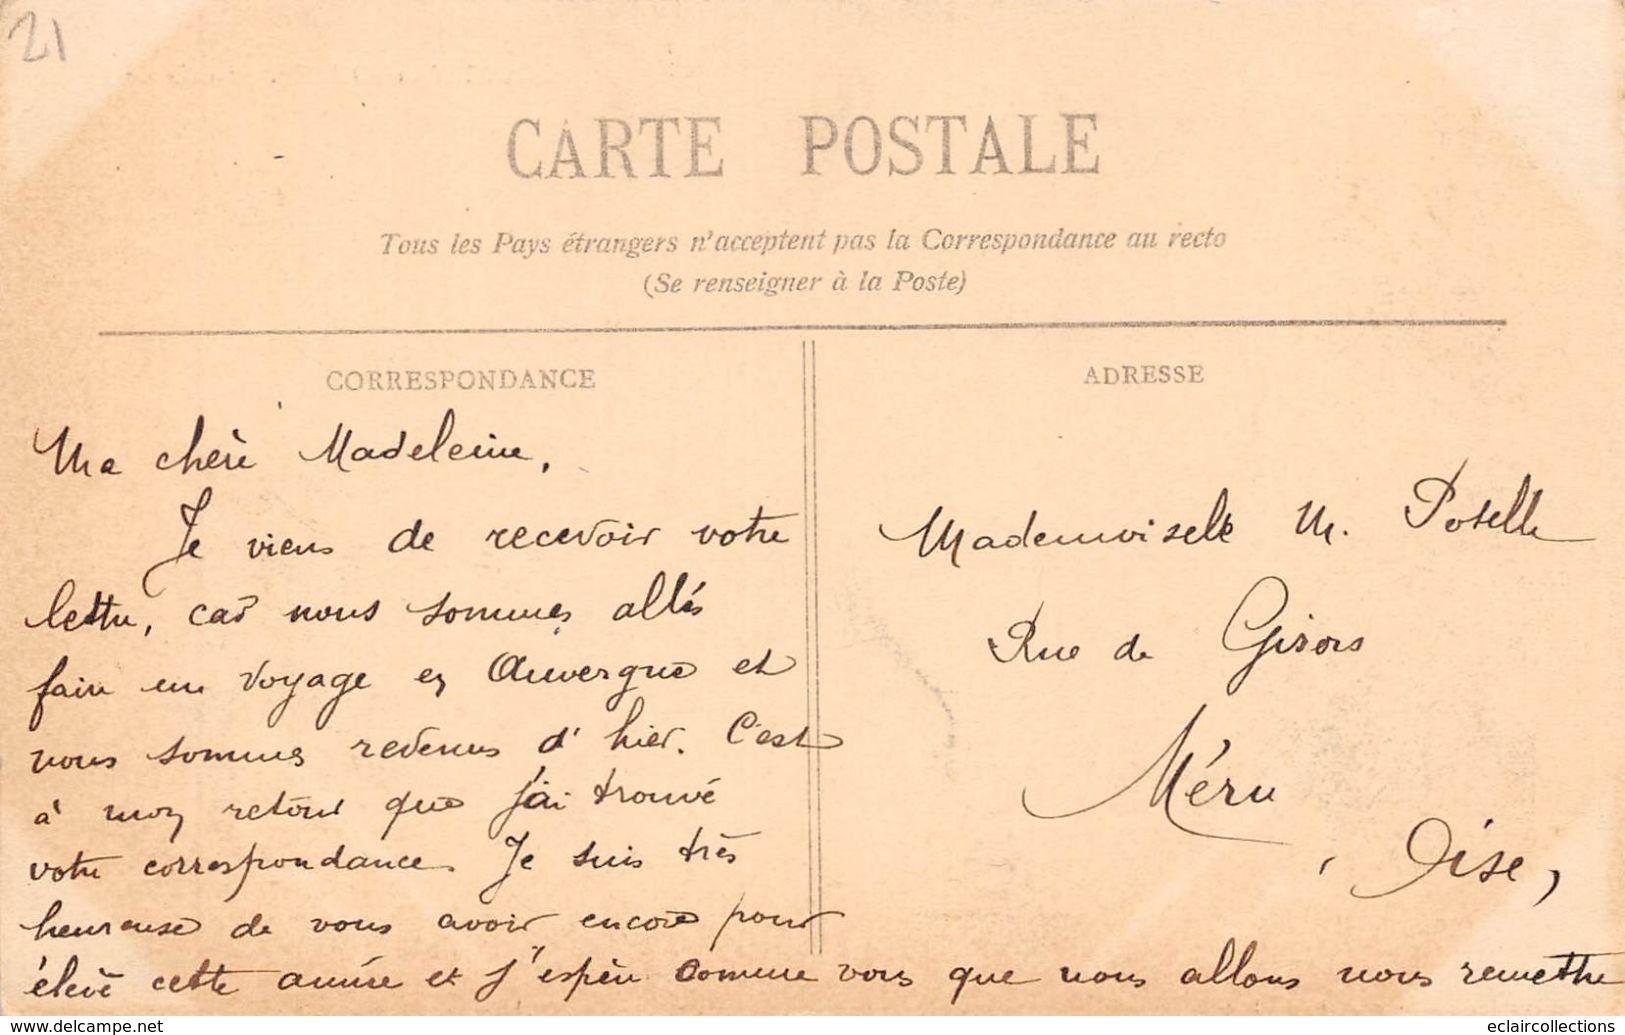 21
CARTE POSTALE
Tous les Pays étrangers n'acceptent pas la Correspondance au recto
(Se renseigner à la Poste)
CORRESPONDANCE
Ma chère Madeleine,
Je viens de recevoir votre
lettre, car nous sommes allés
faire un voyage en Auvergne et
nous sommes revenus d'hier. C'est
à mon retour que j'ai trouvé
votre correspondance. Je suis très
heureuse de vous avoir encore pour
élève cette année et j'espère comme vous que nous allons nous remettre
ADRESSE
Mademoiselle M. Potelle
Rue de Gisors
Méru
, Oise,
www.delcampe.net
eclaircollections